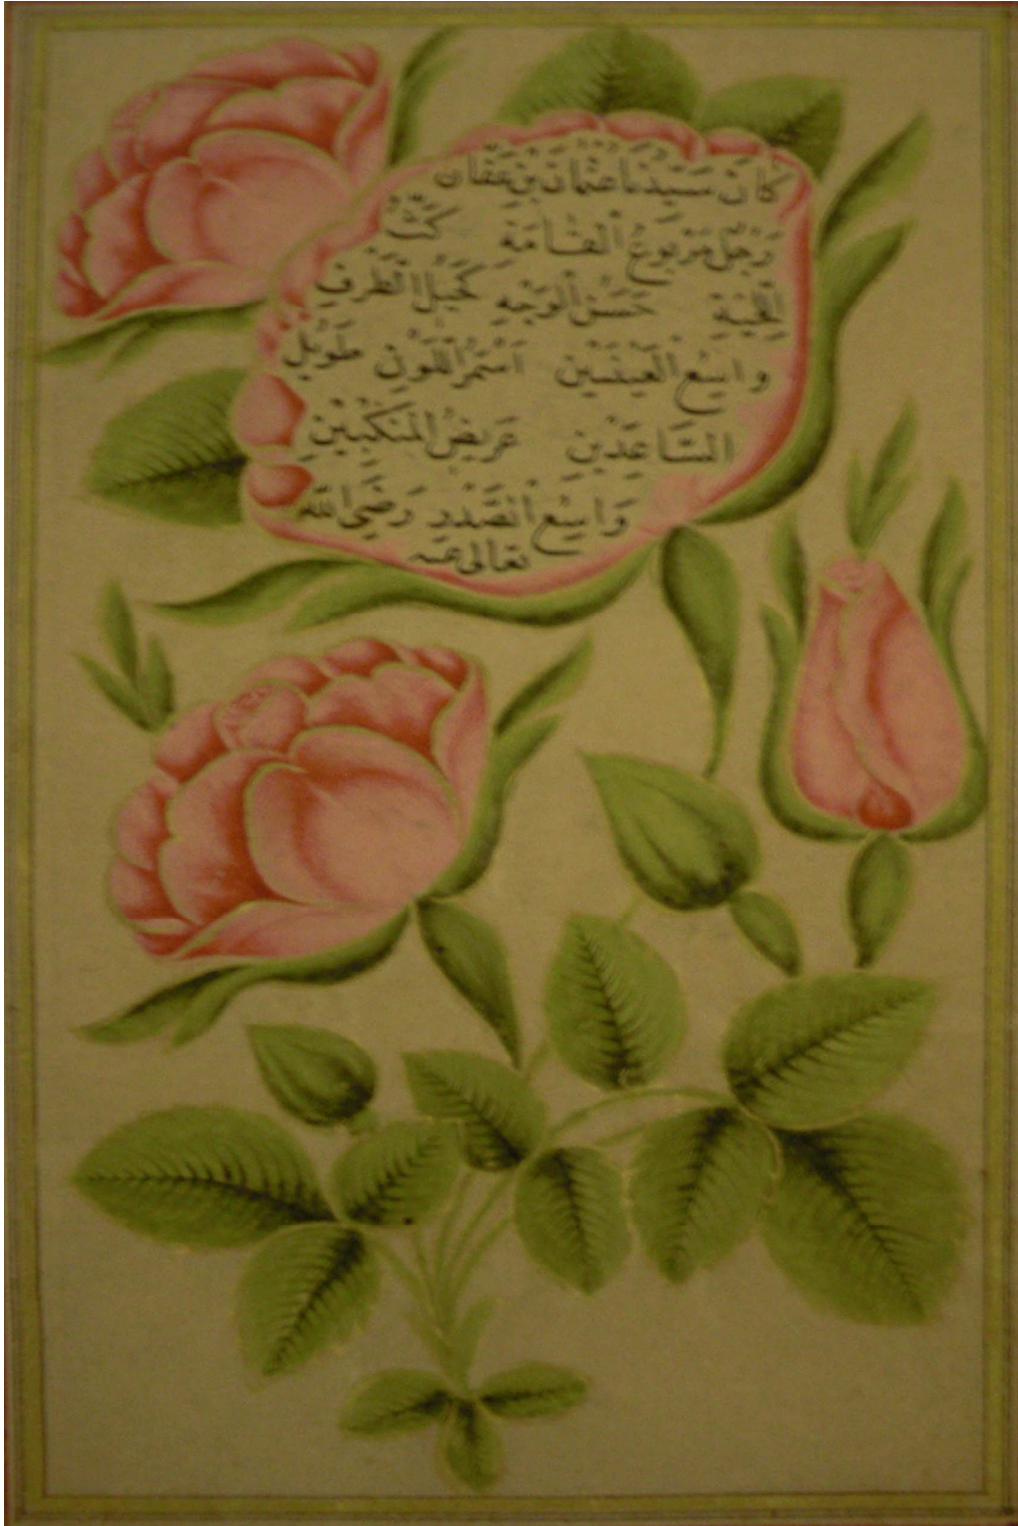 كَانَ سَيِّدُنَا عُثْمَانُ بْنُ عَفَّانَ
رَجُلٌ مَرْبُوعُ الْقَامَةِ كَثُّ
اللِّحْيَةِ حَسَنُ الْوَجْهِ كَحِيلُ الطَّرْفِ
وَاسِعُ الْعَيْنَيْنِ اَسْمَرُ اللَّوْنِ طَوِيلُ
السَّاعِدَيْنِ عَرِيضُ الْمَنْكِبَيْنِ
وَاسِعُ الصَّدْرِ رَضَِىَ اللّٰه
تعالى عنه